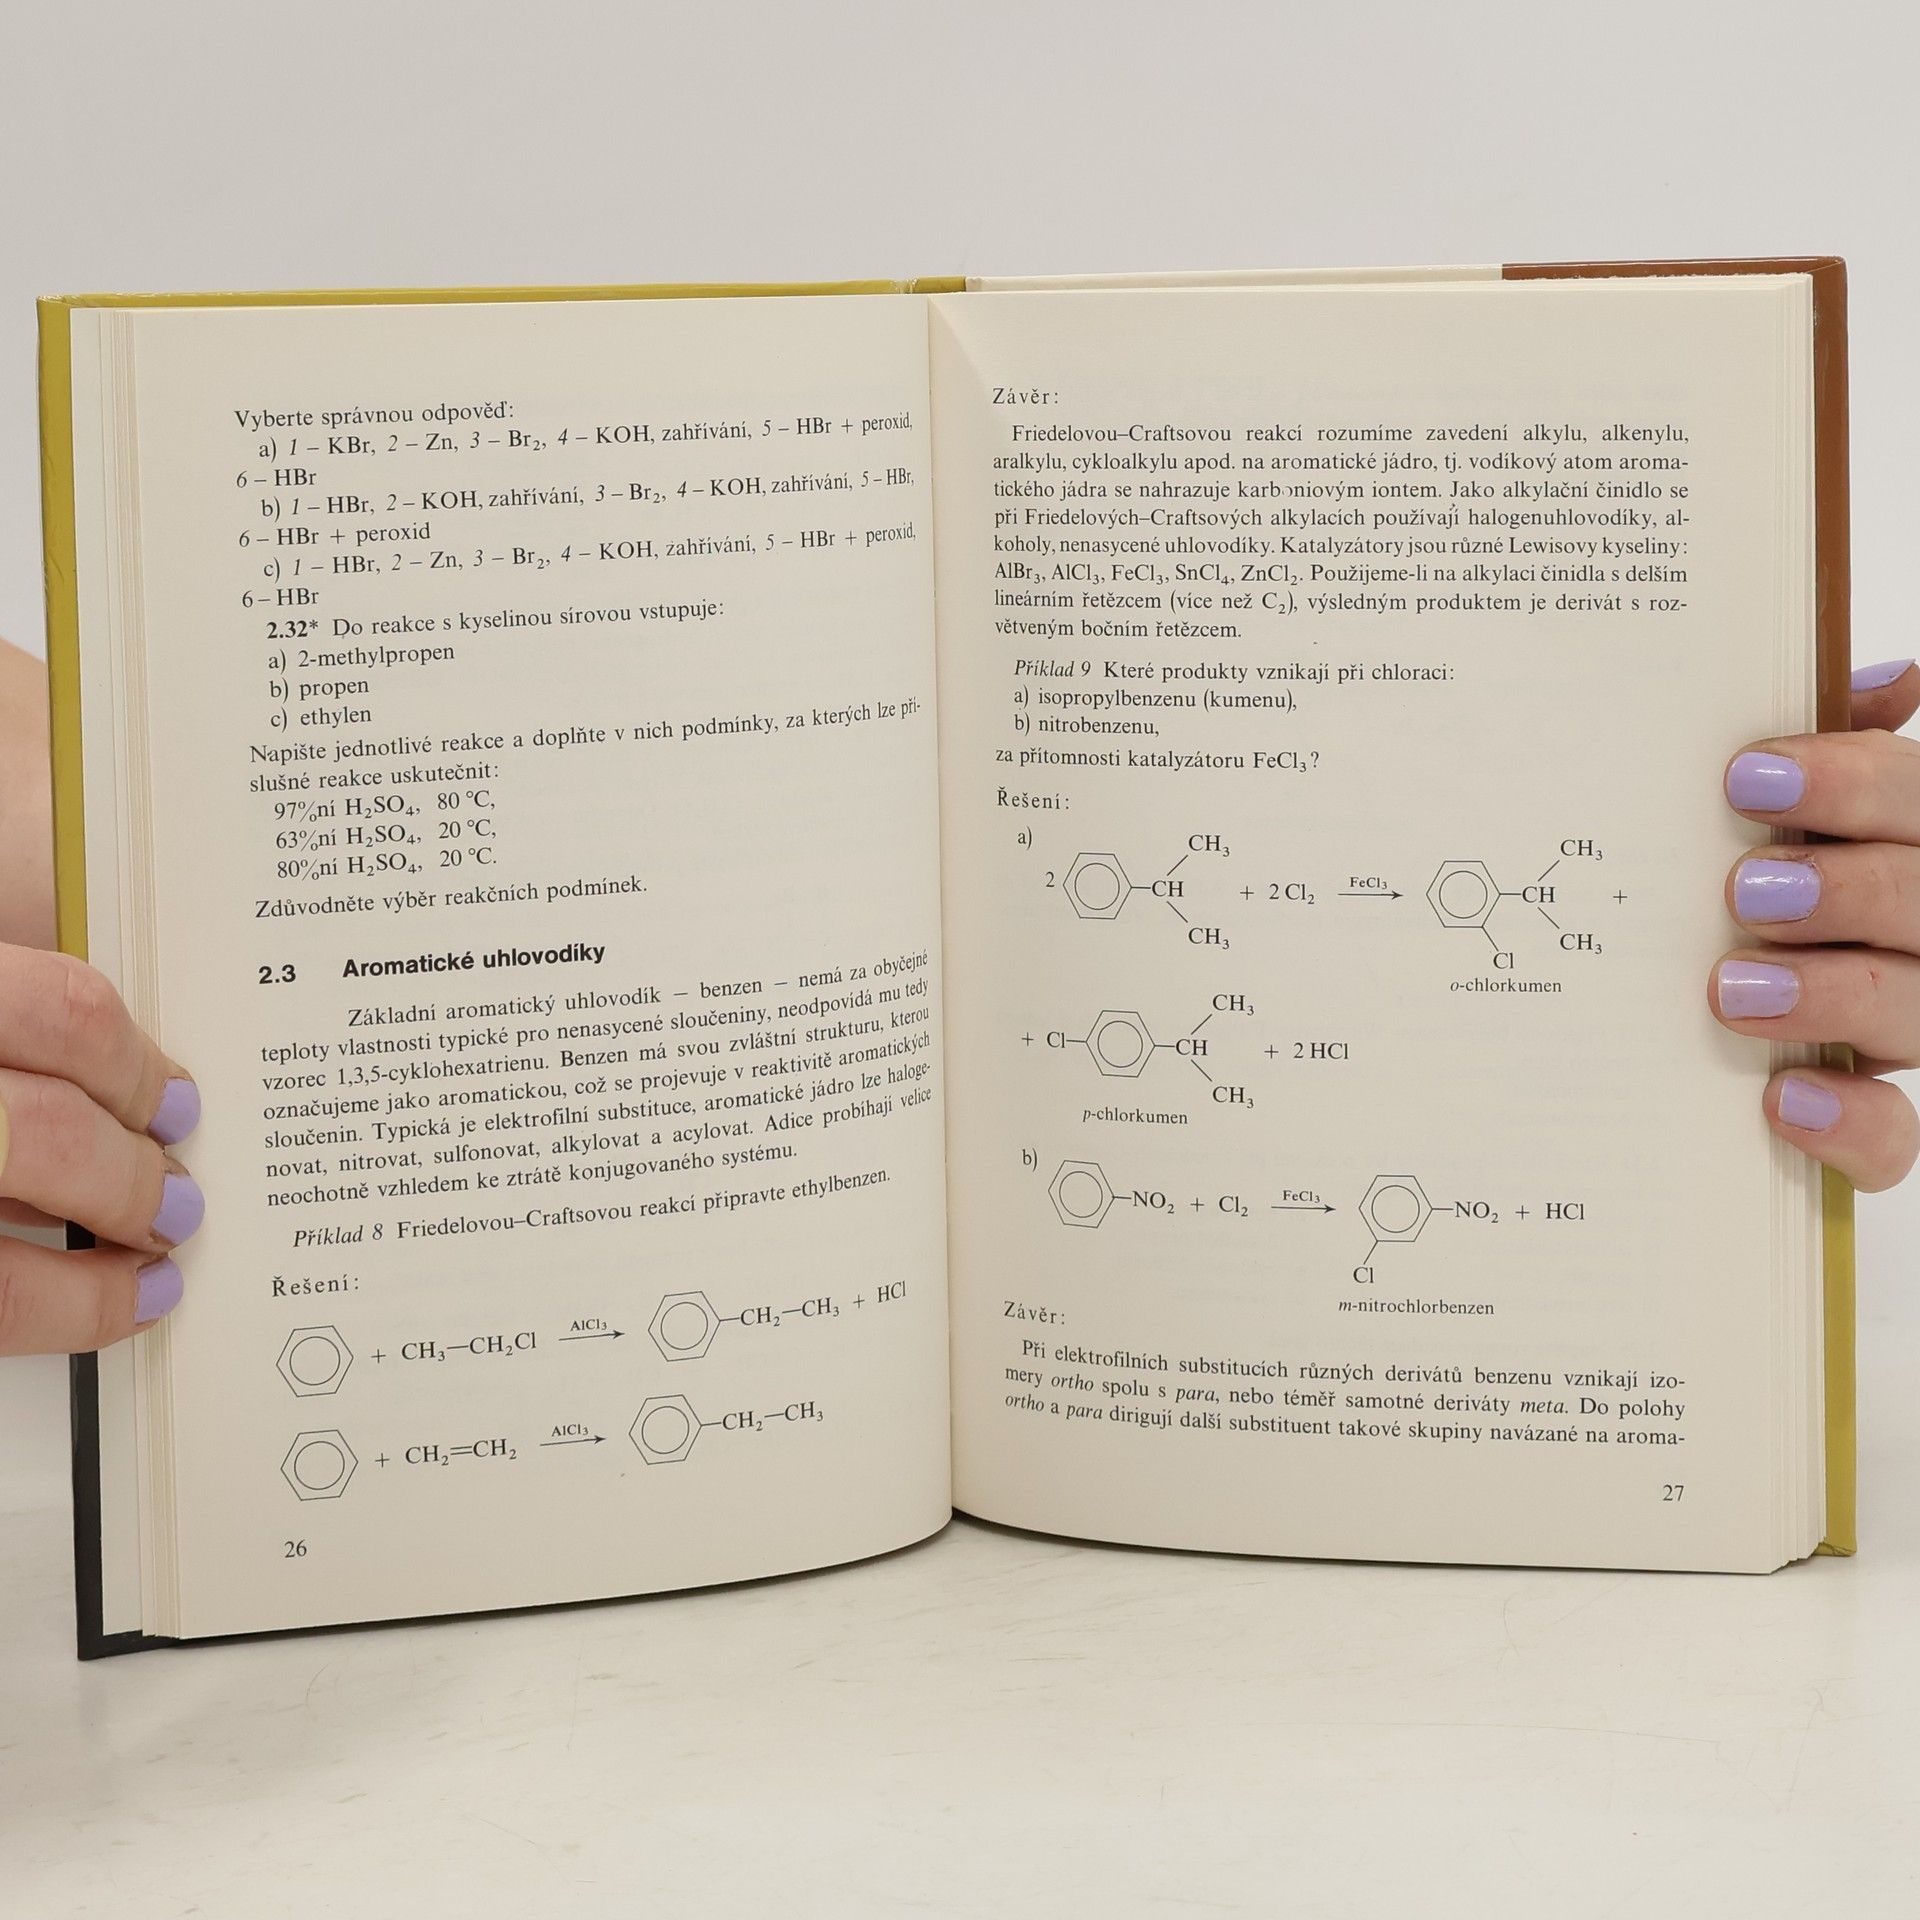 Vyberte správnou odpověď:
a) 1 – KBr, 2 – Zn, 3 – Br₂, 4 – KOH, zahřívání, 5 – HBr + peroxid,
6 – HBr
b) 1 – HBr, 2 – KOH, zahřívání, 3 – Br₂, 4 – KOH, zahřívání, 5 – HBr,
6 – HBr + peroxid
c) 1 – HBr, 2 – Zn, 3 – Br₂, 4 – KOH, zahřívání, 5 – HBr + peroxid,
6 – HBr
2.32* Do reakce s kyselinou sírovou vstupuje:
a) 2-methylpropen
b) propen
c) ethylen
Napište jednotlivé reakce a doplňte v nich podmínky, za kterých lze pří-
slušné reakce uskutečnit:
97%ní H₂SO₄, 80 °C,
63%ní H₂SO₄, 20 °C,
80%ní H₂SO₄, 20 °C.
Zdůvodněte výběr reakčních podmínek.
2.3 Aromatické uhlovodíky
Základní aromatický uhlovodík – benzen – nemá za obyčejné
teploty vlastnosti typické pro nenasycené sloučeniny, neodpovídá mu tedy
vzorec 1,3,5-cyklohexatrienu. Benzen má svou zvláštní strukturu, kterou
označujeme jako aromatickou, což se projevuje v reaktivitě aromatických
sloučenin. Typická je elektrofilní substituce, aromatické jádro lze haloge-
novat, nitrovat, sulfonovat, alkylovat a acylovat. Adice probíhají velice
neochotně vzhledem ke ztrátě konjugovaného systému.
Příklad 8 Friedelovou–Craftsovou reakcí připravte ethylbenzen.
Řešení:
+ CH₃—CH₂Cl AlCl₃ —CH₂—CH₃ + HCl
+ CH₂=CH₂ AlCl₃ —CH₂—CH₃
26
Závěr:
Friedelovou–Craftsovou reakcí rozumíme zavedení alkylu, alkenylu,
aralkylu, cykloalkylu apod. na aromatické jádro, tj. vodíkový atom aroma-
tického jádra se nahrazuje karboniovým iontem. Jako alkylační činidlo se
při Friedelových–Craftsových alkylacích používají halogenuhlovodíky, al-
koholy, nenasycené uhlovodíky. Katalyzátory jsou různé Lewisovy kyseliny:
AlBr₃, AlCl₃, FeCl₃, SnCl₄, ZnCl₂. Použijeme-li na alkylaci činidla s delším
lineárním řetězcem (více než C₂), výsledným produktem je derivát s roz-
větveným bočním řetězcem.
Příklad 9 Které produkty vznikají při chloraci:
a) isopropylbenzenu (kumenu),
b) nitrobenzenu,
za přítomnosti katalyzátoru FeCl₃?
Řešení:
a)
CH₃ CH₃
2 —CH + 2 Cl₂ FeCl₃ —CH +
CH₃ CH₃
Cl
o-chlorkumen
CH₃
+ Cl— —CH + 2 HCl
CH₃
p-chlorkumen
b)
—NO₂ + Cl₂ FeCl₃ —NO₂ + HCl
Cl
m-nitrochlorbenzen
Závěr:
Při elektrofilních substitucích různých derivátů benzenu vznikají izo-
mery ortho spolu s para, nebo téměř samotné deriváty meta. Do polohy
ortho a para dirigují další substituent takové skupiny navázané na aroma-
27